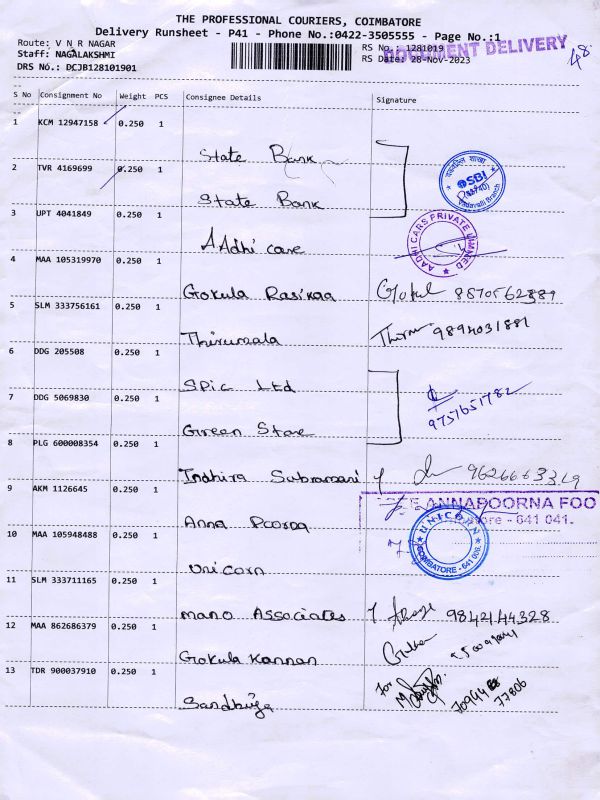 THE PROFESSIONAL COURIERS, COIMBATORE
Delivery Runsheet - P41 - Phone No.:0422-3505555 - Page No.:1
Route: V N R NAGAR
Staff: NAGALAKSHMI
DRS No.: DCJB128101901
RS No.: 1281019
RS Date: 28-Nov-2023
DOCUMENT DELIVERY
48
S No Consignment No Weight PCS Consignee Details Signature
1 KCM 12947158 0.250 1
State Bank
2 TVR 4169699 0.250 1
State Bank
SBI
Vadavalli Branch
3 UPT 4041849 0.250 1
AAdhi care
AADHI CARS PRIVATE LIMITED
4 MAA 105319970 0.250 1
Gokula Rasikaa Gokul 8870562889
5 SLM 333756161 0.250 1
Thirumala Thiru 9894031881
6 DDG 205508 0.250 1
Spic Ltd
7 DDG 5069830 0.250 1
Green Stare
9757651782
8 PLG 600008354 0.250 1
Indhira Subramani
9 AKM 1126645 0.250 1
Anna Poorna
ANNAPOORNA FOO
ore - 641 041.
10 MAA 105948488 0.250 1
Unicorn
UNICORN
COIMBATORE - 641 006.
11 SLM 333711165 0.250 1
mano Associates 9842144328
12 MAA 862686379 0.250 1
Gokula Kannan
13 TDR 900037910 0.250 1
Sandhiya
For
77806